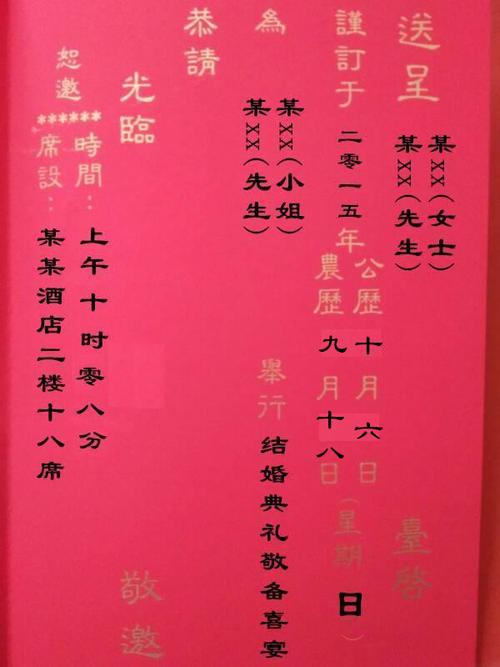 送呈
某××(女士)
某××(先生)
臺啓
謹訂于二零一五年
公歷十月六日
農歷九月十八日
(星期日)
為
某××(小姐)
某××(先生)
舉行结婚典礼敬备喜宴
恭請
光臨
敬邀
恕邀
******
時間：上午十时零八分
席設：某某酒店二楼十八席